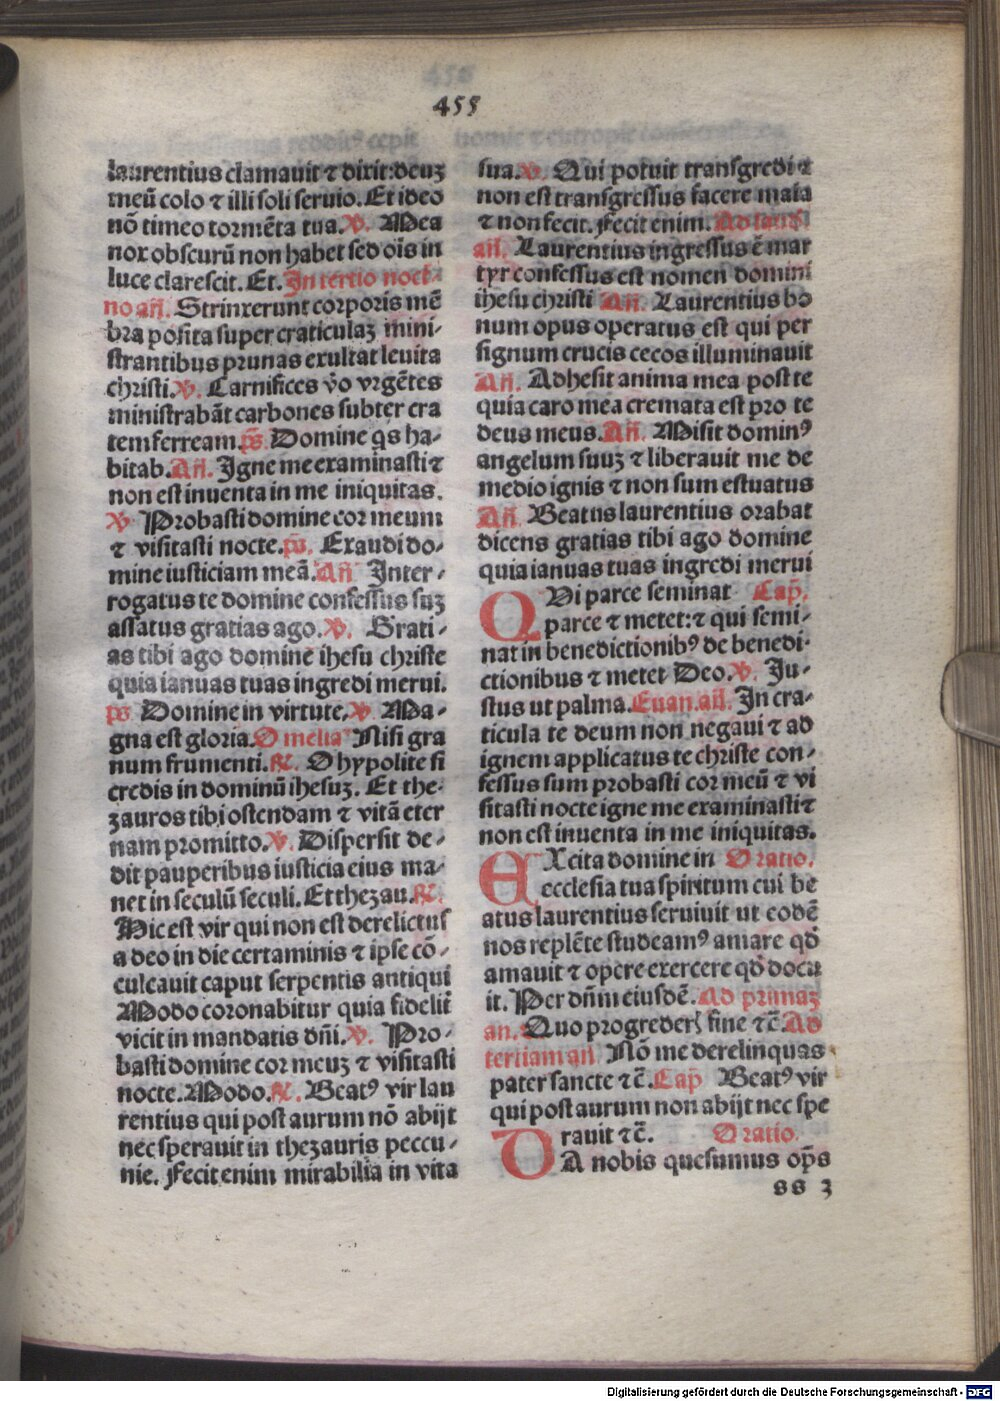 455
laurentius clamauit ⁊ dixit: deuʒ
meū colo ⁊ illi soli seruio. Et ideo
nō timeo tormēta tua. ℣. Mea
nox obscurū non habet sed oīs in
luce clarescit. Et. In tertio noct-
no an̄. Strinxerunt corporis mē
bra posita super craticulaʒ mini-
strantibus prunas exultat leuita
christi. ℣. Carnifices v̄o vrgētes
ministrabāt carbones subter cra
tem ferream. ps̄. Domine q̄s ha-
bitab. An̄. Igne me examinasti ⁊
non est inuenta in me iniquitas.
℣ Probasti domine cor meum
⁊ visitasti nocte. ps̄. Exaudi do-
mine iusticiam meā. An̄ Inter-
rogatus te domine confessus suʒ
assatus gratias ago. ℣. Grati-
as tibi ago domine ihesu christe
quia ianuas tuas ingredi merui.
ps Domine in virtute. ℣. Ma-
gna est gloria. Omelia Nisi gra
num frumenti. ℟. O hypolite si
credis in dominū ihesuʒ. Et the-
zauros tibi ostendam ⁊ vitā eter
nam promitto. ℣. Dispersit de-
dit pauperibus iusticia eius ma-
net in seculū seculi. Et thezau. ℟.
Hic est vir qui non est derelictus
a deo in die certaminis ⁊ ipse cō-
culcauit caput serpentis antiqui
Modo coronabitur quia fidelit̄
vicit in mandatis dn̄i. ℣. Pro-
basti domine cor meuʒ ⁊ visitasti
nocte. Modo. ℟. Beatꝰ vir lau
rentius qui post aurum nō abijt
nec sperauit in thezauris peccu-
nie. Fecit enim mirabilia in vita
sua. ℣. Qui potuit transgredi ⁊
non est transgressus facere mala
⁊ non fecit. Fecit enim. Ad laud'
an̄. Laurentius ingressus ē mar
tyr confessus est nomen domini
ihesu christi An̄. Laurentius bo
num opus operatus est qui per
signum crucis cecos illuminauit
An̄. Adhesit anima mea post te
quia caro mea cremata est pro te
deus meus. An̄. Misit dominꝰ
angelum suuʒ ⁊ liberauit me de
medio ignis ⁊ non sum estuatus
An̄. Beatus laurentius orabat
dicens gratias tibi ago domine
quia ianuas tuas ingredi merui
QVi parce seminat Cap̄.
parce ⁊ metet: ⁊ qui semi-
nat in benedictionibꝰ de benedi-
ctionibus ⁊ metet Deo. ℣. Ju-
stus ut palma. Euan. an̄. In cra-
ticula te deum non negaui ⁊ ad
ignem applicatus te christe con-
fessus sum probasti cor meū ⁊ vi
sitasti nocte igne me examinasti ⁊
non est inuenta in me iniquitas.
EXcita domine in Oratio.
ecclesia tua spiritum cui be
atus laurentius seruiuit ut eodē
nos replēte studeamꝰ amare qd̄
amauit ⁊ opere exercere qd̄ docu
it. Per dn̄m eiusdē. Ad primaʒ
an. Quo progrederꝭ sine ⁊ c̄. Ad
tertiam an̄. Nō me derelinquas
pater sancte ⁊ c̄. Cap̄ Beatꝰ vir
qui post aurum non abijt nec spe
rauit ⁊ c̄. Oratio.
DA nobis quesumus op̄s
ss 3
Digitalisierung gefördert durch die Deutsche Forschungsgemeinschaft - DFG